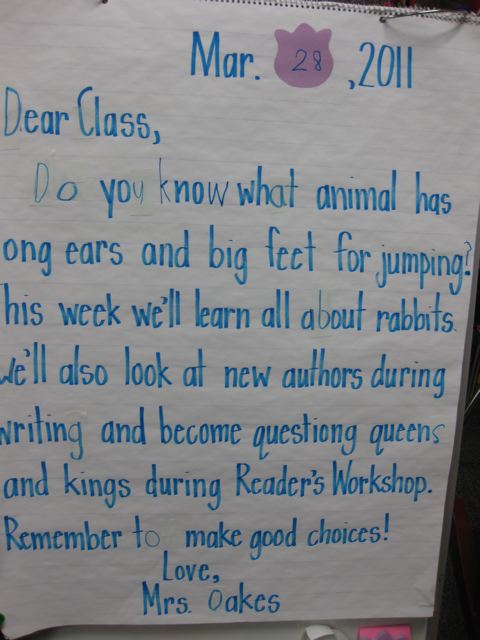 Mar. 28, 2011
Dear Class,
Do you know what animal has
ong ears and big feet for jumping?
his week we'll learn all about rabbits.
we'll also look at new authors during
writing and become questiong queens
and kings during Reader's Workshop.
Remember to make good choices!
Love,
Mrs. Oakes